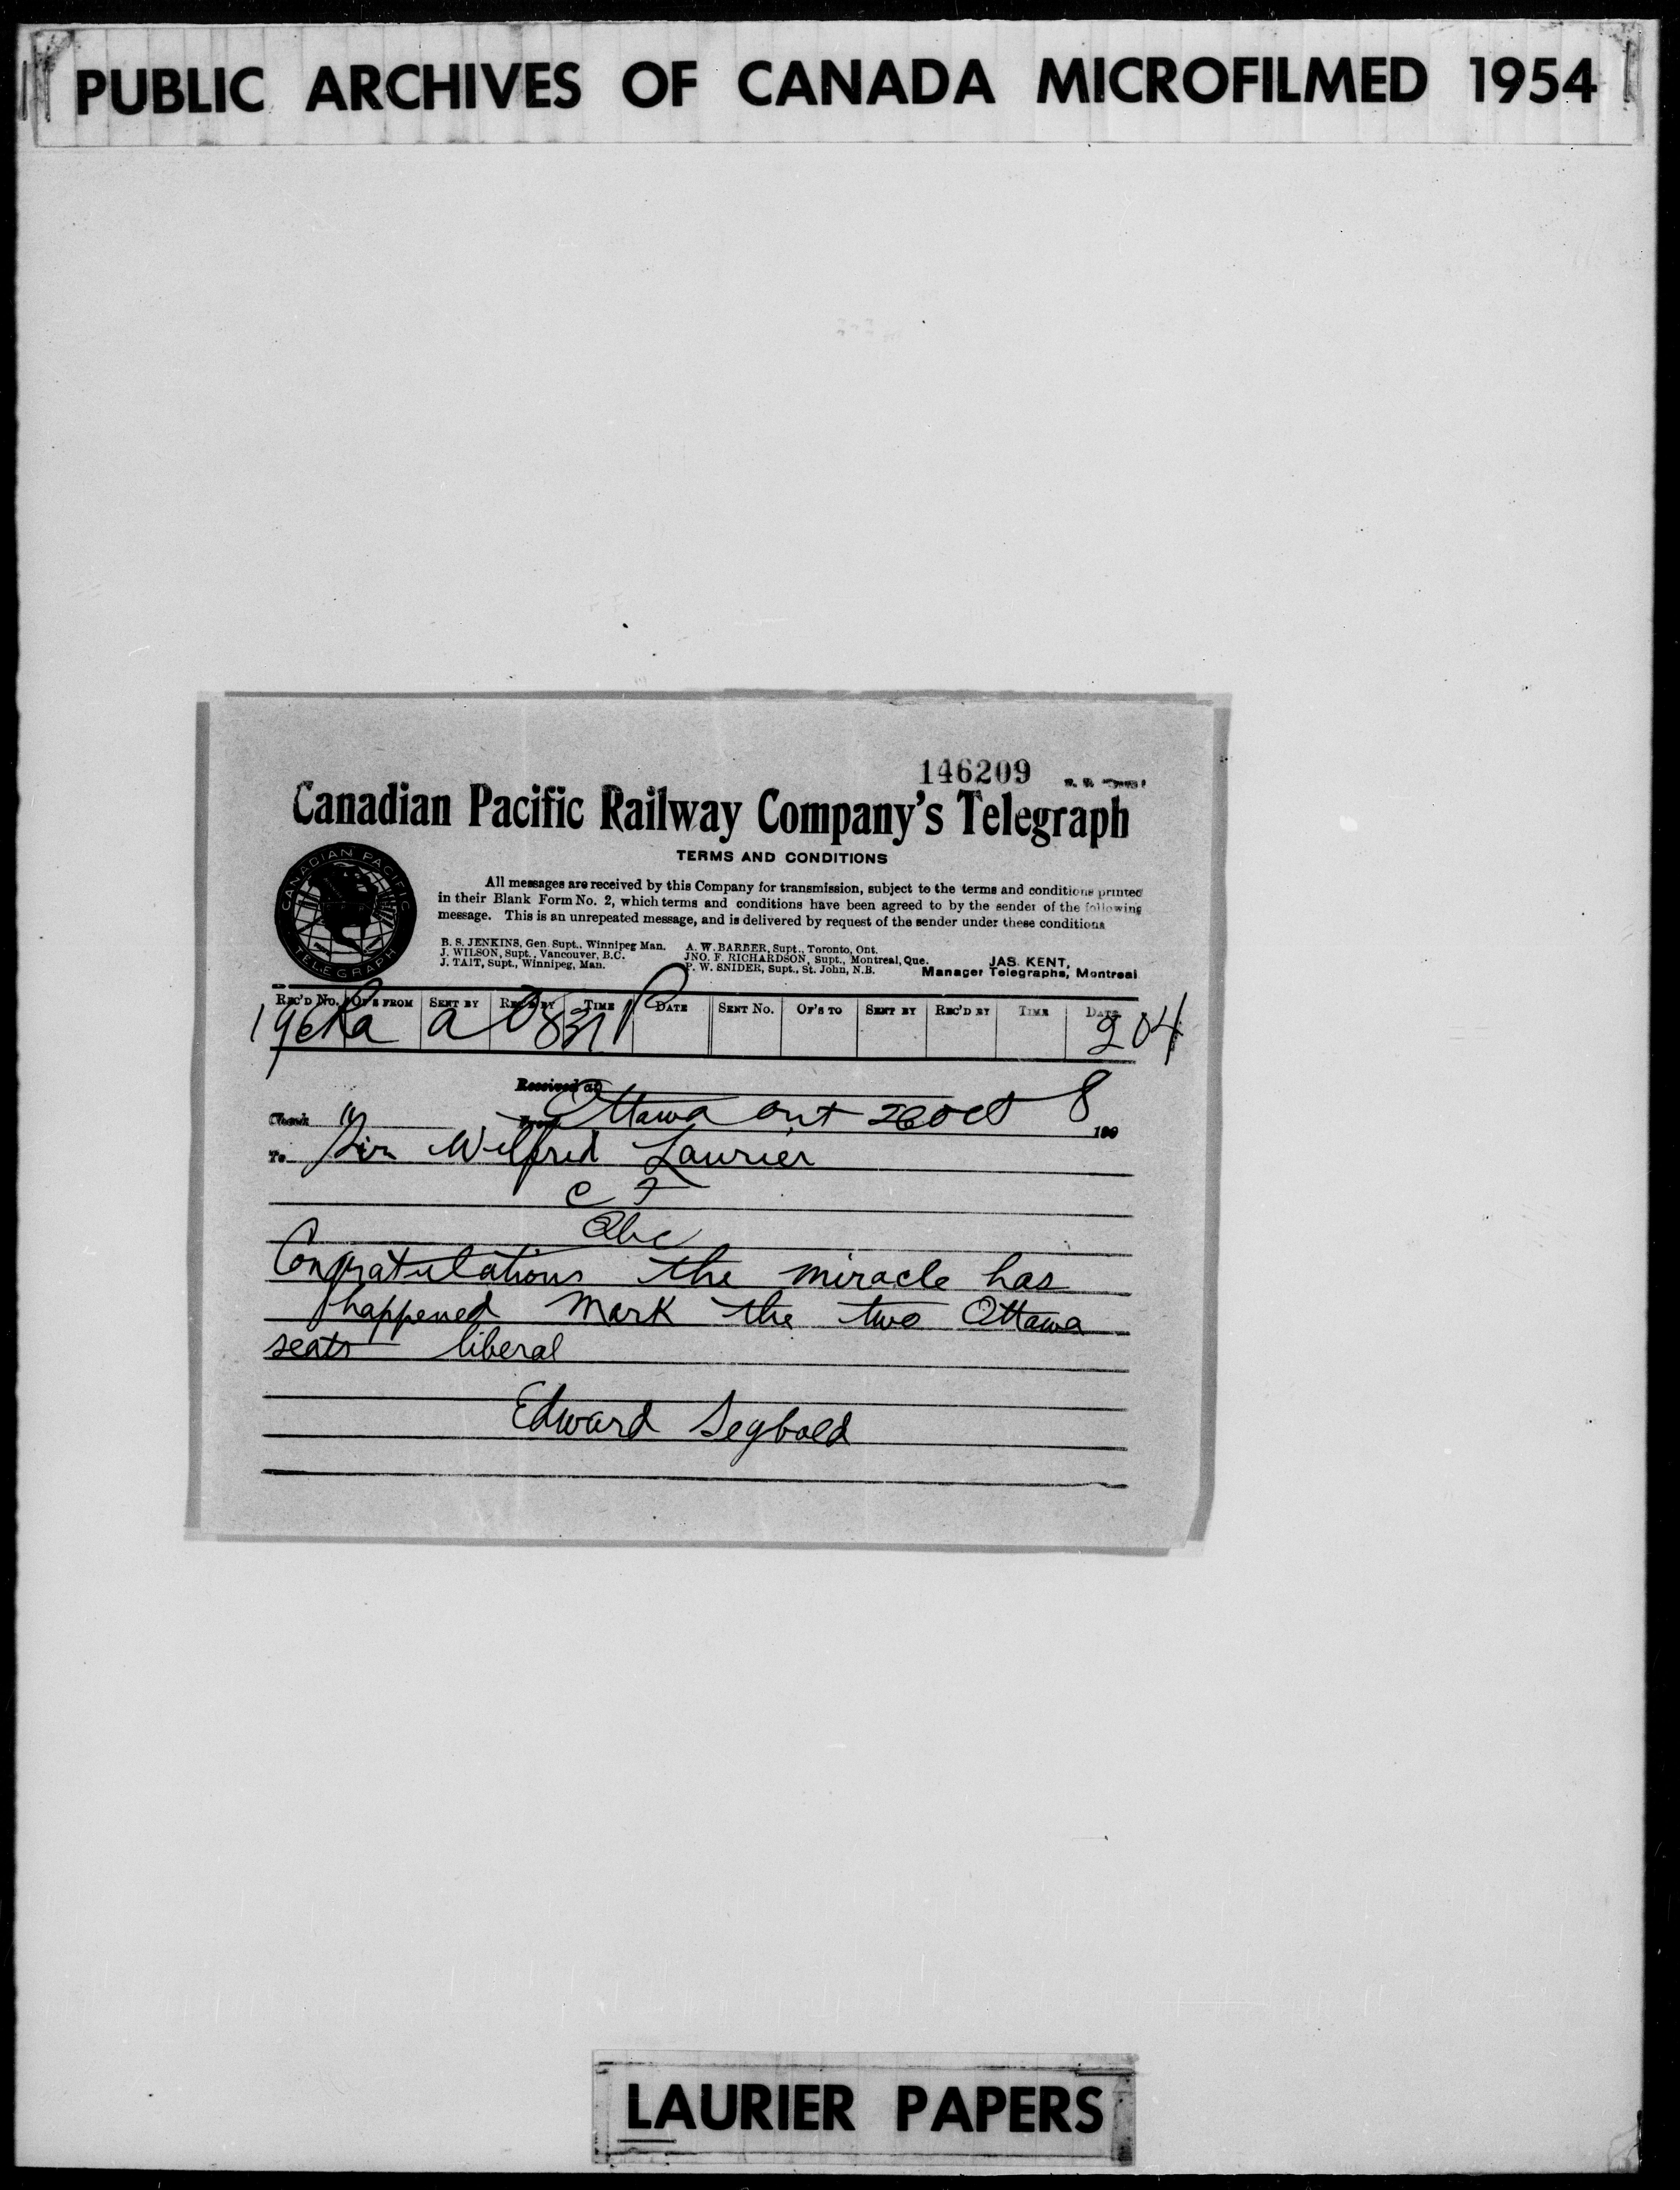 PUBLIC ARCHIVES OF CANADA MICROFILMED 1954
146209
Canadian Pacific Railway Company's Telegraph
TERMS AND CONDITIONS
CANADIAN PACIFIC
TELEGRAPH
All messages are received by this Company for transmission, subject to the terms and conditions printed
in their Blank Form No. 2, which terms and conditions have been agreed to by the sender of the following
message. This is an unrepeated message, and is delivered by request of the sender under these conditions
B. S. JENKINS, Gen. Supt., Winnipeg Man. A. W. BARBER, Supt., Toronto, Ont.
J. WILSON, Supt., Vancouver, B.C. JNO. F. RICHARDSON, Supt., Montreal, Que. JAS. KENT,
J. TAIT, Supt., Winnipeg, Man. P. W. SNIDER, Supt., St. John, N.B. Manager Telegraphs, Montreal
REC'D NO. OF'S FROM SENT BY REC'D BY TIME DATE SENT NO. OF'S TO SENT BY REC'D BY TIME DATE
a 204
Received at
Check Ottawa Ont 26 Oct 8 190
To Sir Wilfrid Laurier
C F
Qbc
Congratulations the miracle has
happened Mark the two Ottawa
seats liberal
Edward Segbold
LAURIER PAPERS